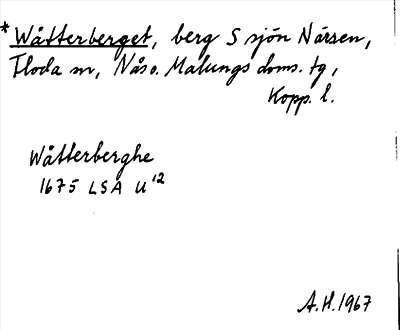 * Wåtterberget, berg S sjön Närsen,
Floda sn, Nås o. Malungs doms. tg,
Kopp. l.
Wåtterberghe
1675 LSA U 12
A.H. 1967